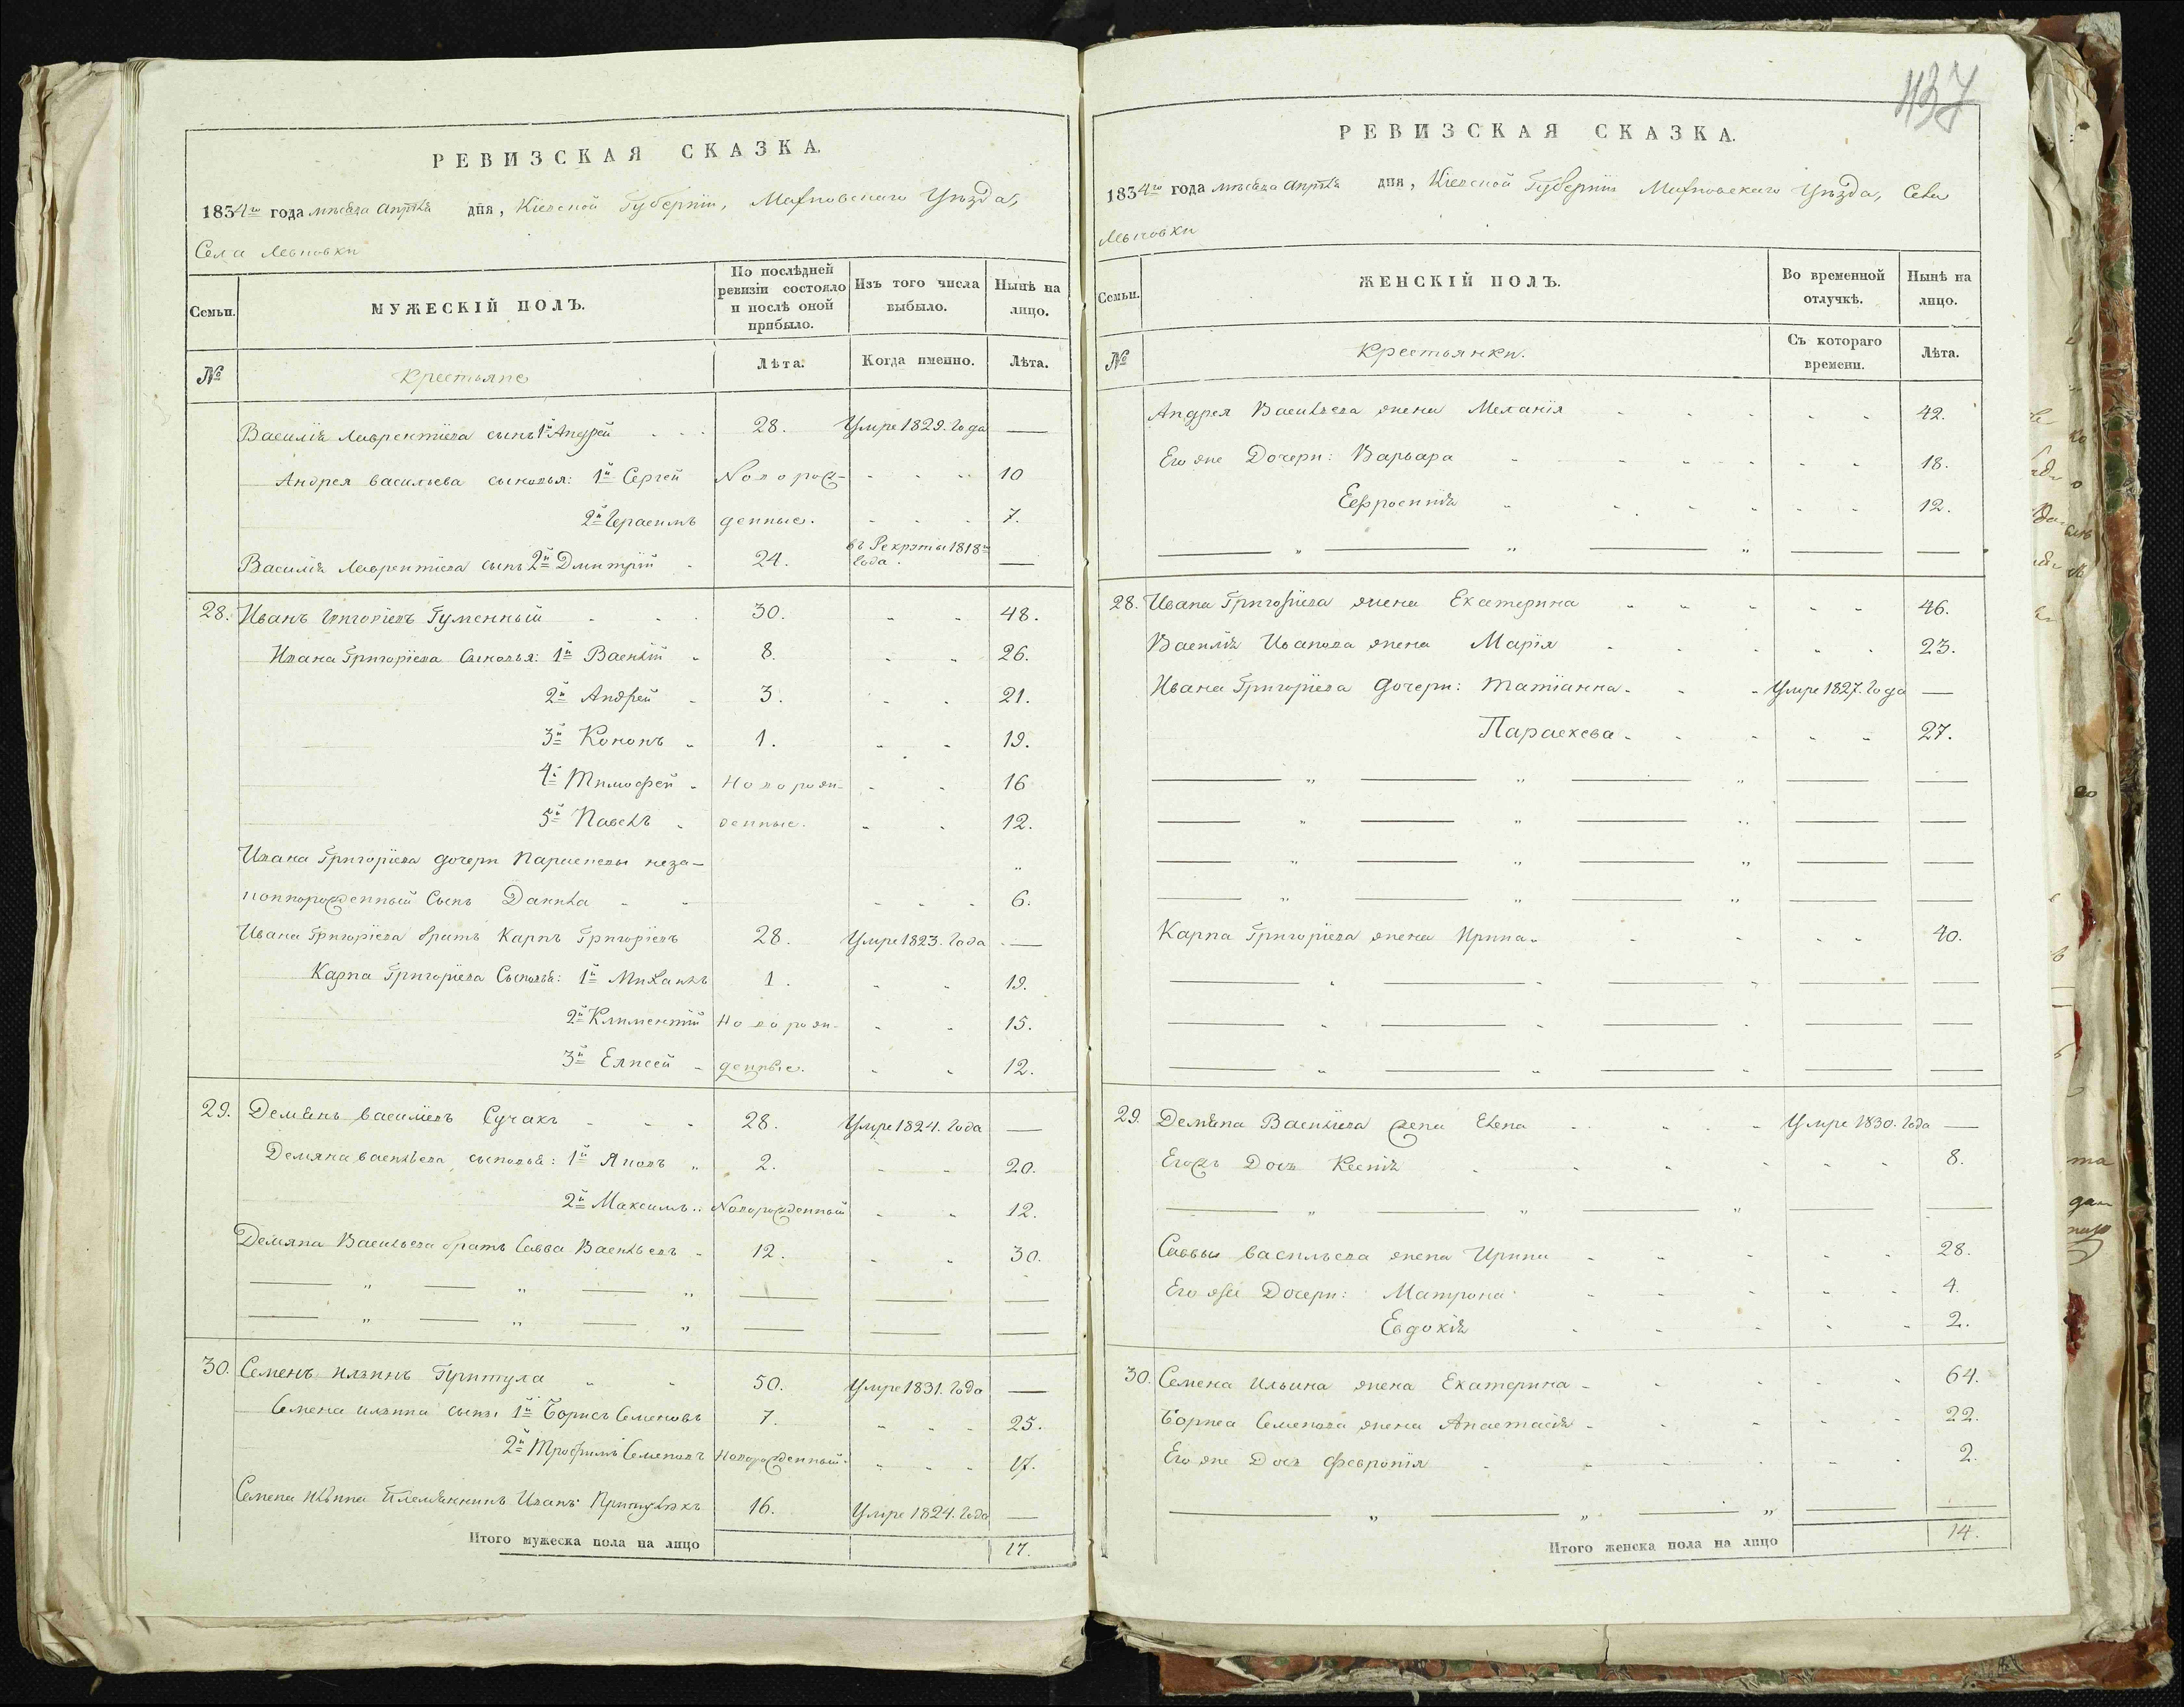 437
РЕВИЗСКАЯ СКАЗКА.
1834го года мѣсяца Апрѣля дня, Кіевской Губерніи, Махновскаго Уѣзда,
Села Левковки
Семьи.
МУЖЕСКІЙ ПОЛЪ.
По послѣдней ревизіи состояло и послѣ оной прибыло.
Изъ того числа выбыло.
Нынѣ на лицо.
№
Крестьяне
Лѣта.
Когда именно.
Лѣта.
Василія Лаврентіева сынъ 1й Андрей 28. Умре 1829. Года —
Андрея Васильева сыновья: 1й Сергей Новорож- 10
2й Герасимъ денные. 7.
Василія Лаврентіева сынъ 2й Дмитрій 24. въ Рекруты 1818го Года. —
28. Иванъ Григоріевъ Гуменный 30. 48.
Ивана Григоріева Сыновья: 1й Василій 8. 26.
2й Андрей 3. 21.
3й Кононъ 1. 19.
4й ТимофейНоворож- 16
5й Павелъ денные. 12.
Ивана Григоріева дочери Параскевы неза-
коннорожденный Сынъ Данила 6.
Ивана Григоріева братъ Карпъ Григоріевъ 28. Умре 1823. Года —
Карпа Григоріева Сыновья: 1й Михаилъ 1. 19.
2й Климентій Новорож- 15.
3й Елисей денные. 12.
29. Демянъ Василіевъ Сучакъ 28. Умре 1824. Года —
Демяна Васильева сыновья: 1й Яковъ 2. 20.
2й Максимъ Новорожденный 12.
Демяна Васильева братъ Савва Васильевъ 12. 30.
30. Семенъ Ильинъ Притула 50. Умре 1831. Года —
Семена Ильина сынъ: 1й Борисъ Семеновъ 7. 25.
2й Трофимъ Семеновъ Новорожденный. 17.
Семена Ильина Племянникъ Иванъ 16. Умре 1824. Года —
Итого мужеска пола на лицо 17.
РЕВИЗСКАЯ СКАЗКА.
1834го года мѣсяца Апрѣля дня, Кіевской Губерніи Махновскаго Уѣзда, Села
Левковки
Семьи.
ЖЕНСКІЙ ПОЛЪ.
Во временной отлучкѣ.
Нынѣ на лицо.
№
Крестьянки.
Съ котораго времени.
Лѣта.
Андрея Васильева жена Меланія 42.
Его же Дочери: Варвара 18.
Ефросинія 12.
28. Ивана Григоріева жена Екатерина 46.
Василія Иванова жена Марія 23.
Ивана Григоріева дочери: Татіанна Умре 1827. Года —
Параскева 27.
Карпа Григоріева жена Ирина 40.
29. Демяна Василіева жена Елена Умре 1830. Года —
Егожъ Дочь Ксенія 8.
Саввы Васильева жена Ирина 28.
Его же Дочери: Матрона 4.
Евдокія 2.
30. Семена Ильина жена Екатерина 64.
Бориса Семенова жена Анастасія 22.
Его же Дочь Февронія 2.
Итого женска пола на лицо 14.